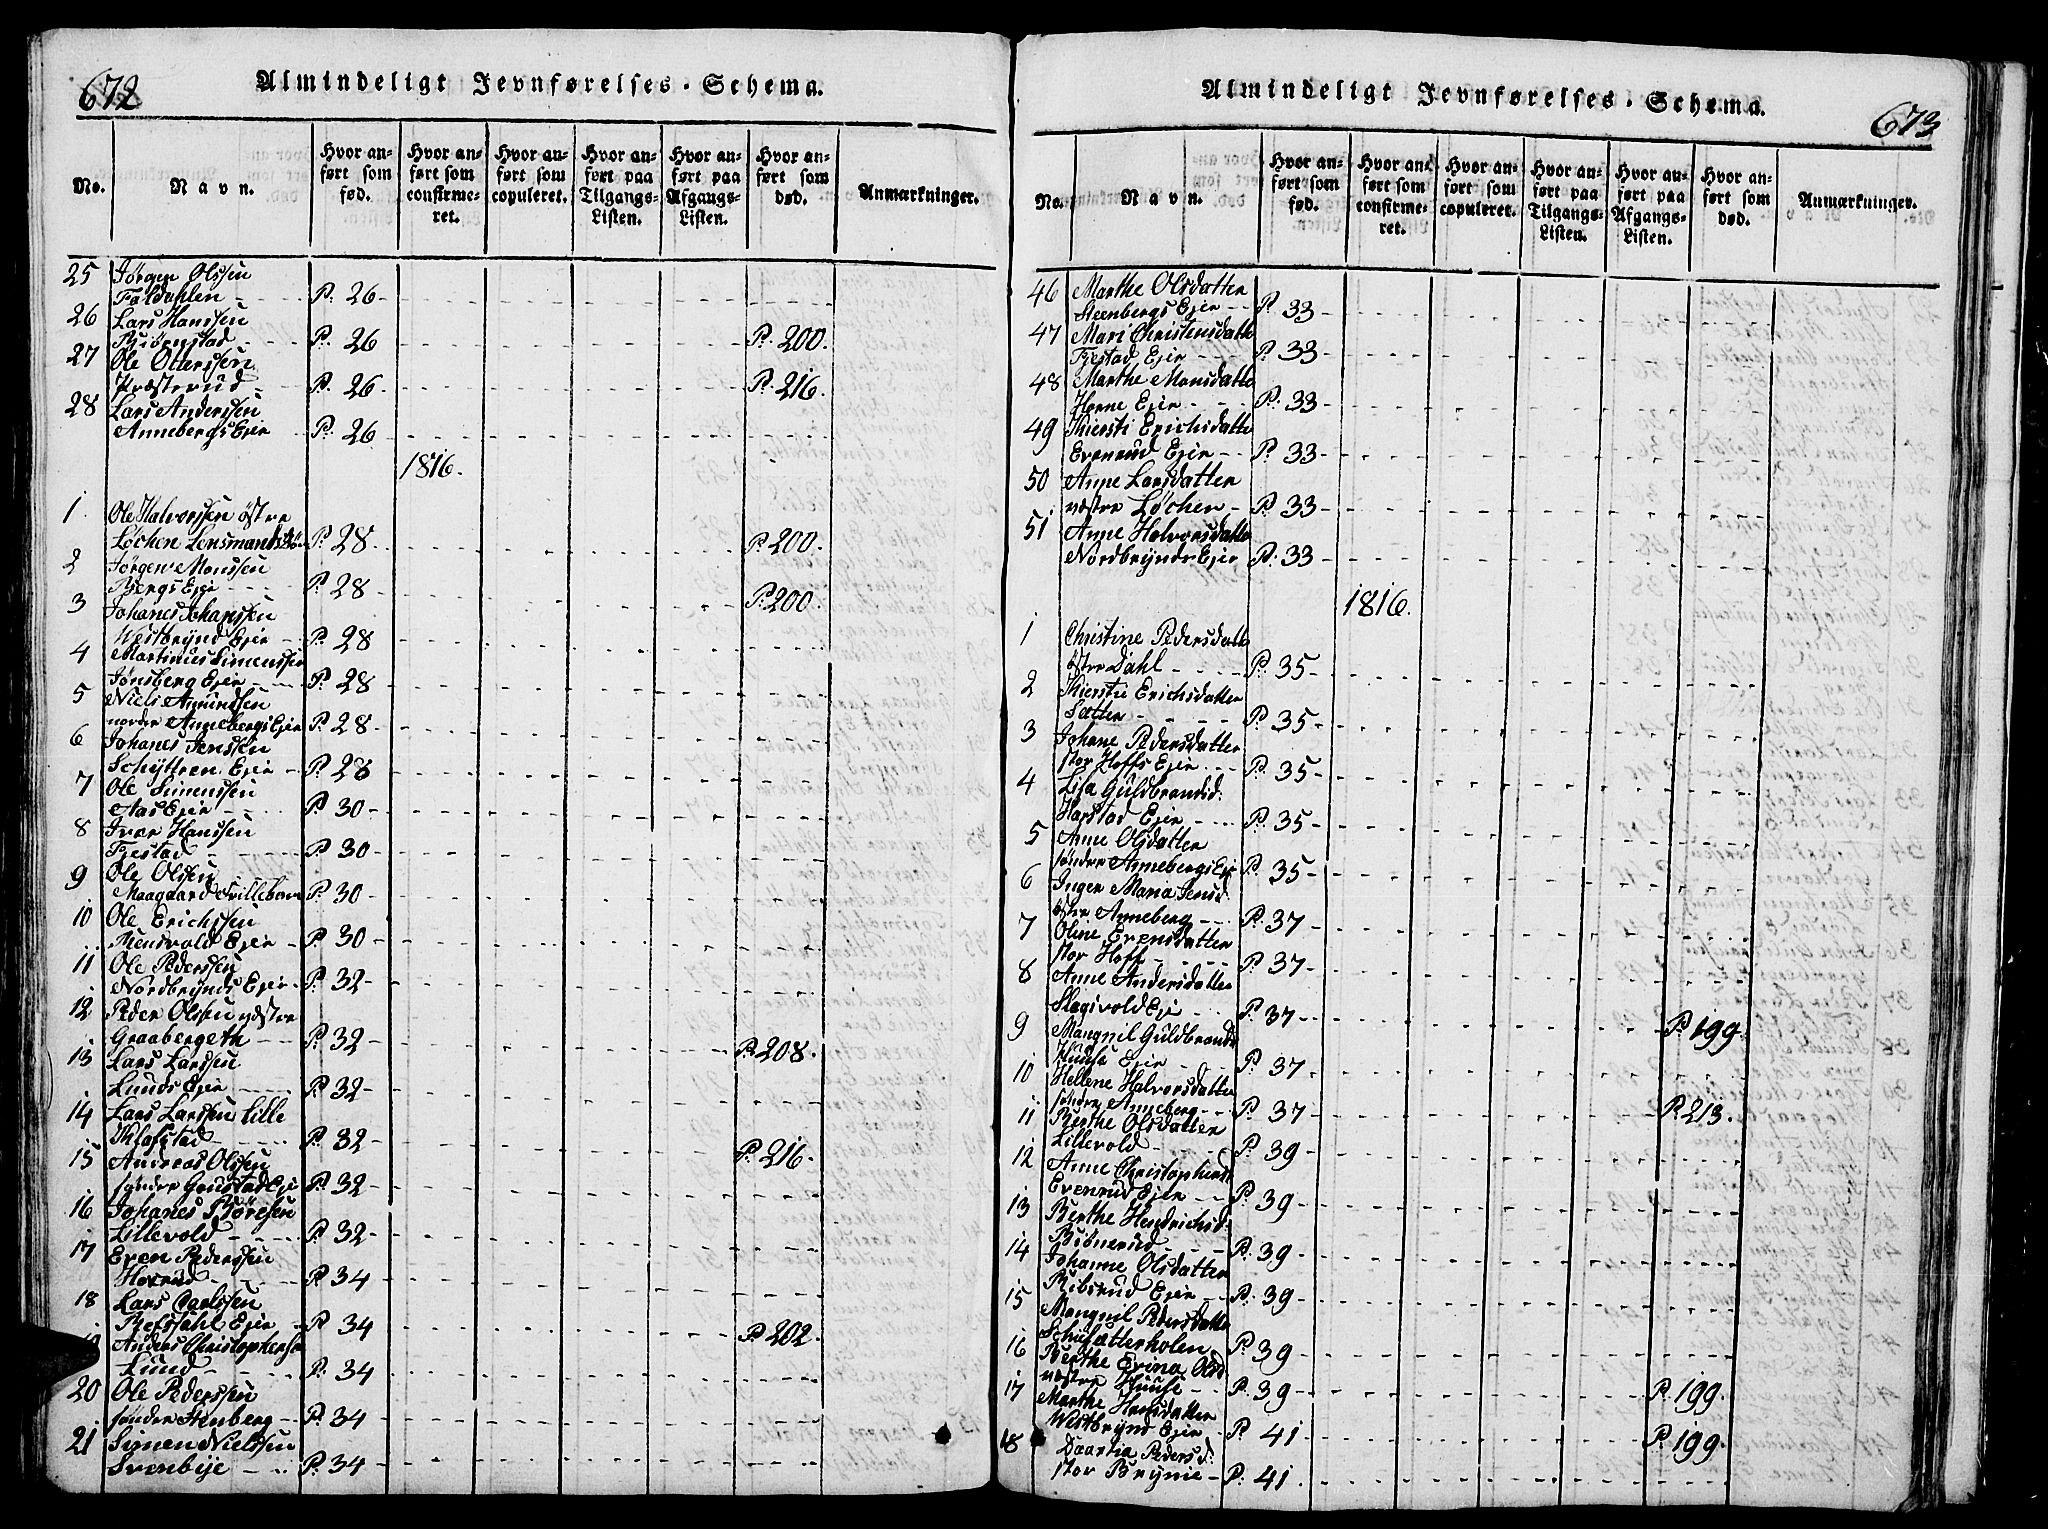 672
Almindeligt Jevnførelses-Schema.
No.
Navn.
Hvor anført som fød.
Hvor anført som confirmeret.
Hvor anført som copuleret.
Hvor anført paa Tilgangs-Listen.
Hvor anført paa Afgangs-Listen.
Hvor anført som død.
Anmærkninger.
25 Jørgen Olssen
Foldahlen P. 26
26 Lars Hanssen
Biørnstad P. 26 P. 200.
27 Ole Otterssen
Præsterud P. 26 P. 216
28 Lars Anderssen
Annebergs Ejer P. 26
1816.
1. Ole Halvorssen østre
Løchen Lensmands P. 28 P. 200.
2 Jørgen Monssen
Bergs Ejer P. 28 P. 200.
3 Johanes Johanssen
Westbrÿnd Ejer P. 28
4 Martinus Simenssen
Jønsberg Ejer P. 28
5 Niels Amundsen
nordre Annebergs Ejer P. 28
6 Johanes Jenssen
Schÿttren Ejer P. 28
7 Ole Simenssen
Aas Ejer P. 30
8 Iver Hanssen
Fjestad P. 30
9 Ole Olssen
Maagaard P. 30
10 Ole Erichssen
Mensvold Ejer P. 30
11 Ole Pederssen
Nordbrÿnds Ejer P. 32
12 Peder Olssen væstre
Graabergeth P. 32 P. 208.
13 Lars Larssen
Lunds Ejer P. 32
14 Lars Larssen Lille
Kløfstad P. 32 P. 216
15 Andreas Olssen
søndre Gaustad Eje P. 32
16 Johanes Børesen
Lillevold P. 32
17 Even Pederssen
Hovrud P. 34
18 Lars Carlssen
Refsdahl Ejer P. 34 P. 202.
Anders Christophersen
Lund P. 34
20 Ole Pederssen
søndre Stenberg P. 34
21 Simen Nielssen
Svenbÿe P. 34
Almindeligt Jevnførelses-Schema.
673
No.
Navn.
Hvor anført som fød.
Hvor anført som confirmeret.
Hvor anført som copuleret.
Hvor anført paa Tilgangs-Listen.
Hvor anført paa Afgangs-Listen.
Hvor anført som død.
Anmærkninger.
46 Marthe Olsdatter
Steenbergs Ejer P. 33
47 Mari Christensdatte
Fjestad Ejer P. 33
48 Marthe Monsdatte
Horne Ejer P. 33
49 Kiersti Erichsdatte
Evenrud Ejer P. 33
50 Anne Larsdatter
væstre Løchen P. 33
51 Anne Halvorsdatte
Nordbrÿnds Ejer P. 33
1816.
1 Christine Pedersdatte
østre Dahl P. 35
2 Kierstie Erichsdatter
Sætter P. 35
3 Johane Pedersdatter
stor Hoffs Ejer P. 35
4 Lisa Guldbrandsd:
Harstad Ejer P. 35
5 Anne Olsdatter
søndre Annebergs Ejer P. 35
6 Inger Maria Jensd:
østre Anneberg P. 37
7 Oline Evensdatter
stor Hoff P. 37
8 Anne Andersdatter
Slagsvold Ej P. 37 P. 199.
9 Mangnil Guldbrands
Huuse Ejer P. 37
10 Hellene Halvorsdatter
søndre Anneberg P. 37 P. 213.
11 Berthe Olsdatter
Lillevold P. 39
12 Anne Christophersd
Evenrud Ejer P. 39
13 Berthe Hendrichsd
P. 39
14 Johanne Olsdatter
Ribsrud Ejer P. 39
15 Mangnil Pedersdatte
P. 39
16 Berthe Evina Olsd
væstre Huuse P. 39 P. 199.
17 Marthe Hansdatter
Westbrÿnd Ejer P. 41 P. 199.
18 Daartia Pedersd:
stor Brÿnie P. 41